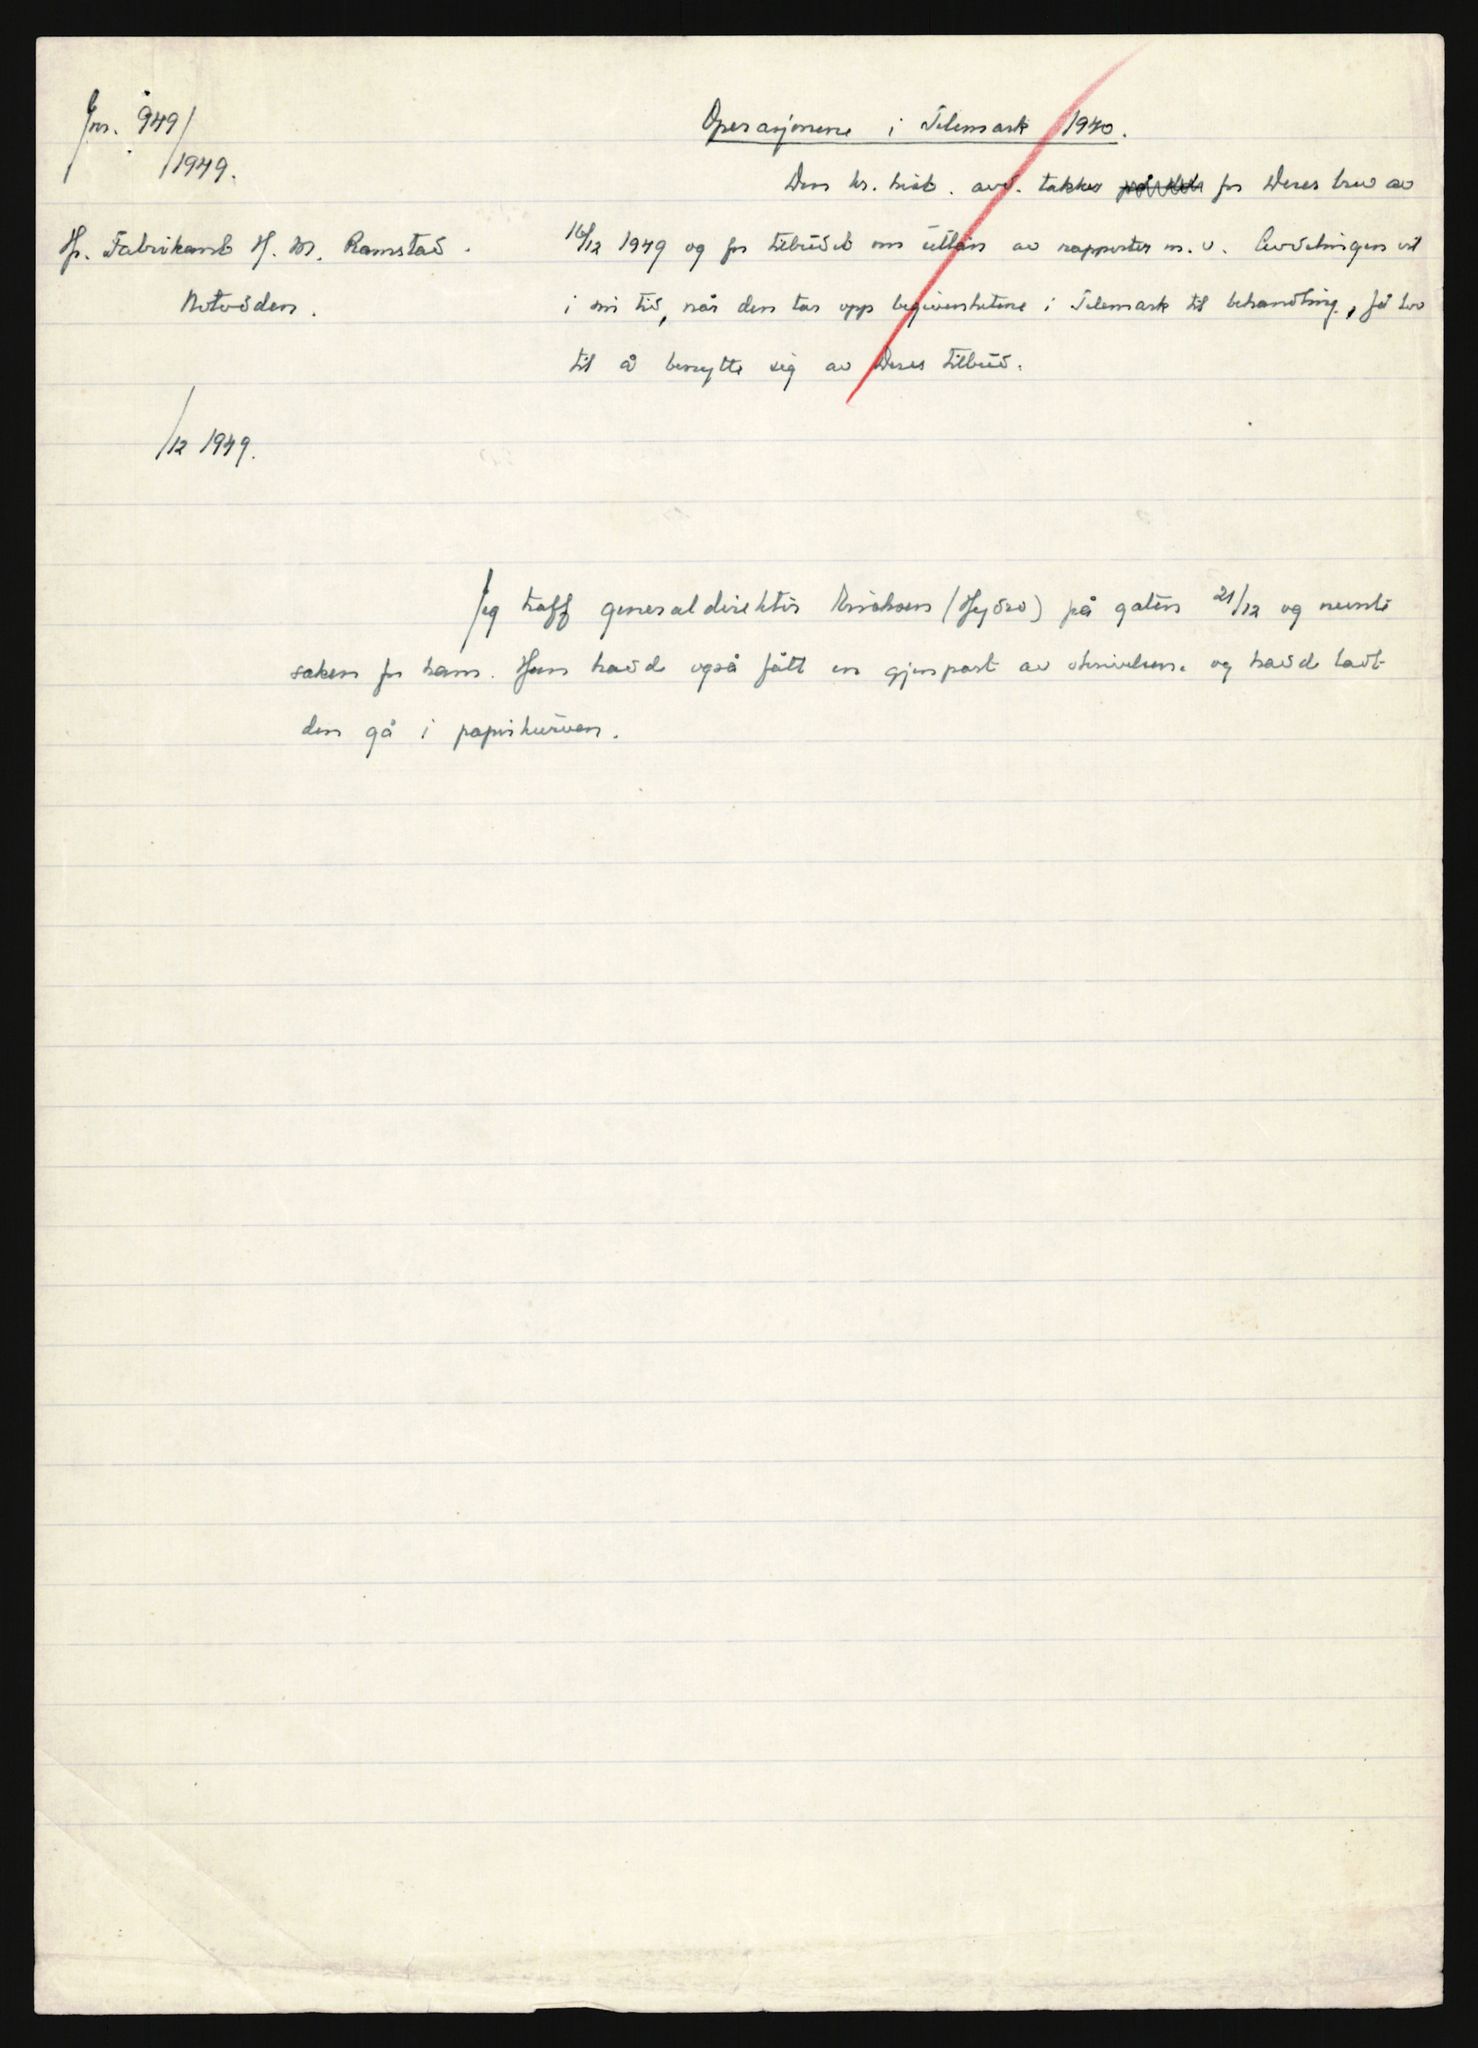 Jnr. 949/
/1949.
Hr. Fabrikant H. M. Ramstad.
Notodden.
/12 1949.
Operasjonene i Telemark 1940.
Den kr. hist. avd. takker for Deres brev av
16/12 1949 og for tilbudet om utlån av rapporter m. v. Avdelingen vil
i sin tid, når den tar opp begivenhetene i Telemark til behandling, få lov
til å benytte sig av Deres tilbud.
Jeg traff generaldirektør Eriksen (Hydro) på gaten 21/12 og nevnte
saken for ham. Han hadde også fått en gjenpart av skrivelsen og hadde latt
den gå i papirkurven.